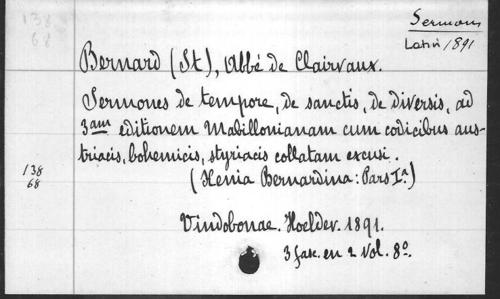 138
68
Sermons
Latin 1891
Bernard (St), Abbé de Clairvaux.
Sermones de tempore, de sanctis, de diversis, ad
3am editionem Mabillonianam cum codicibus aus-
triacis, bohemicis, styriacis collatam excusi.
138
68
(Xenia Bernardina: Pars Ia.)
Vindobonae. Hoelder. 1891.
3 fasc. en 2 vol. 8o.